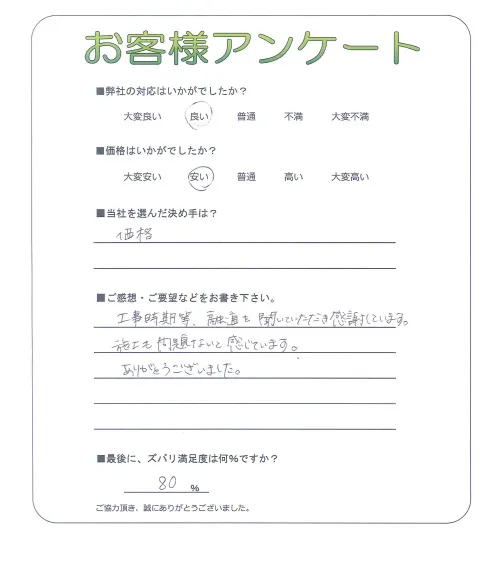 お客様アンケート
■弊社の対応はいかがでしたか？
大変良い 良い 普通 不満 大変不満
■価格はいかがでしたか？
大変安い 安い 普通 高い 大変高い
■当社を選んだ決め手は？
価格
■ご感想・ご要望などをお書き下さい。
工事時期等、融通を聞いていただき感謝しています。
施工も問題ないと感じています。
ありがとうございました。
■最後に、ズバリ満足度は何%ですか？
80 %
ご協力頂き、誠にありがとうございました。